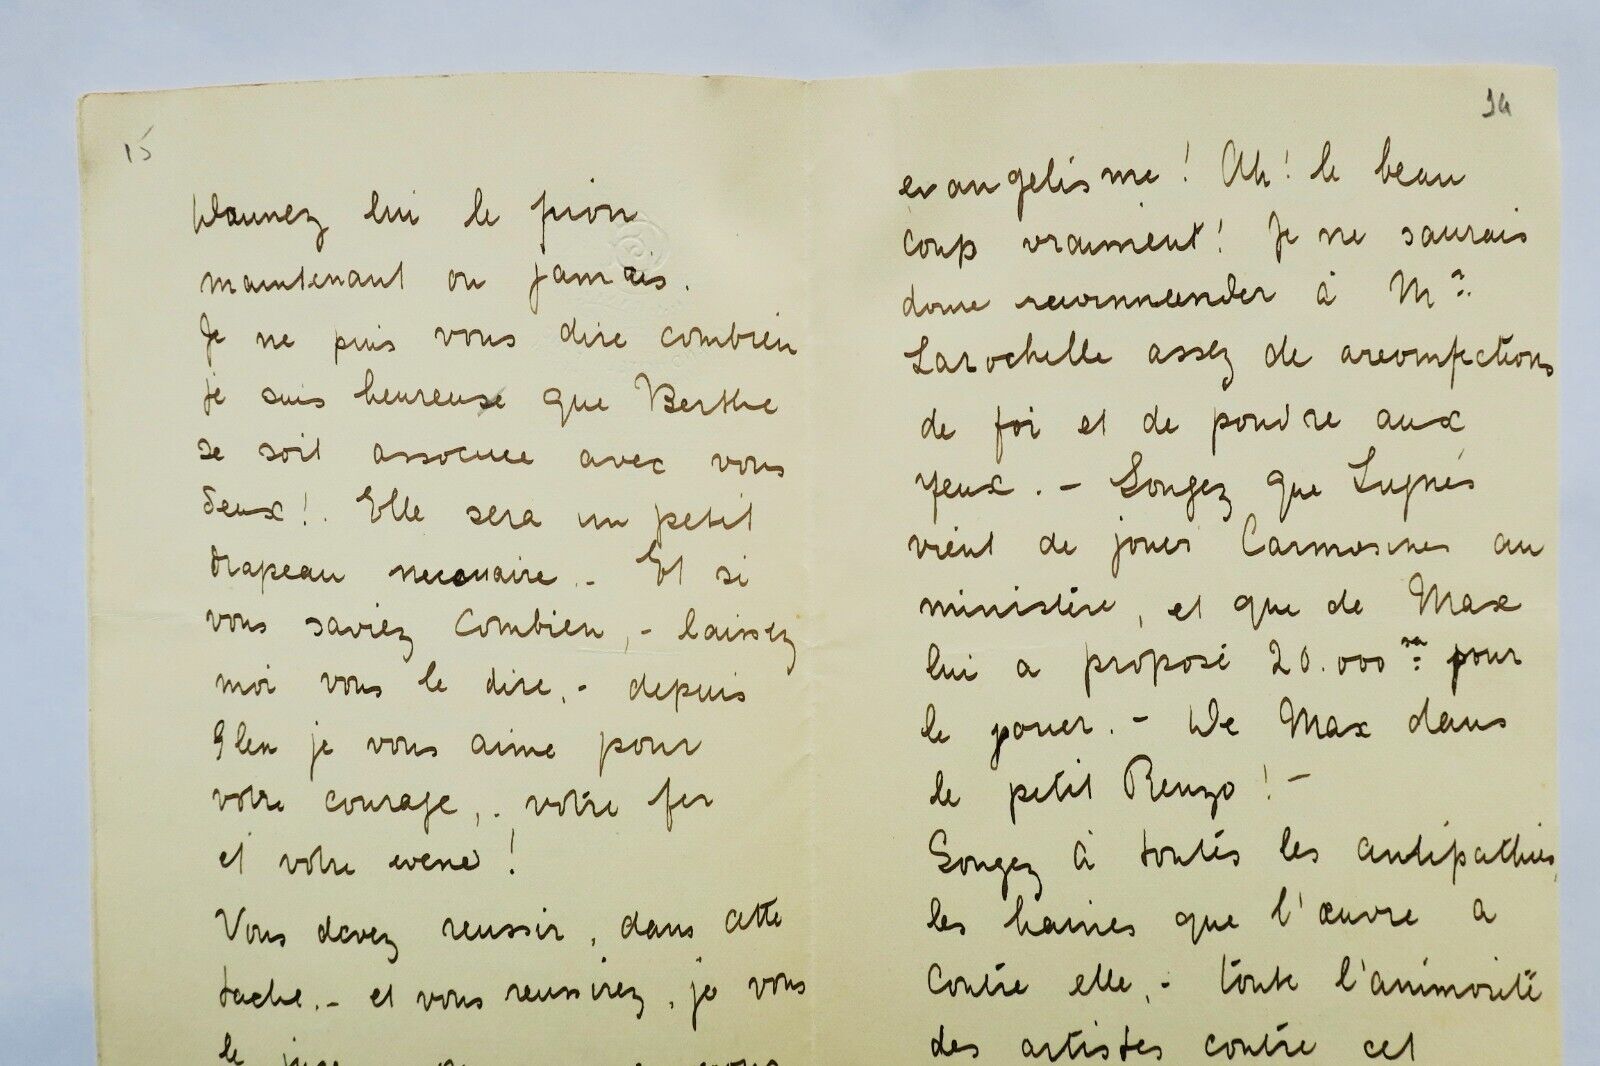 15
Damez lui le pion
maintenant ou jamais.
Je ne puis vous dire combien
je suis heureuse que Berthe
se soit associée avec vous
deux!. Elle sera un petit
drapeau necessaire.- Et si
vous saviez combien,- laissez
moi vous le dire,- depuis
je vous aime pour
votre courage,. votre fer
et votre !
Vous devez reussir, dans cette
tache.- et vous reussirez, je vous
le
14
evangelisme! Ah! le beau
coup vraiment! Je ne saurais
donc recommender à Mr
Larochelle assez de
de foi et de poudre aux
yeux.- Songez que Lugné
vient de jouer Carmosine au
ministère, et que de Max
lui a proposé 20.000 pour
le jouer.- De Max dans
le petit Renzo!-
Songez à toutes les antipathies,
les haines que l'œuvre a
contre elle,- toute l'animosité
des artistes contre cet